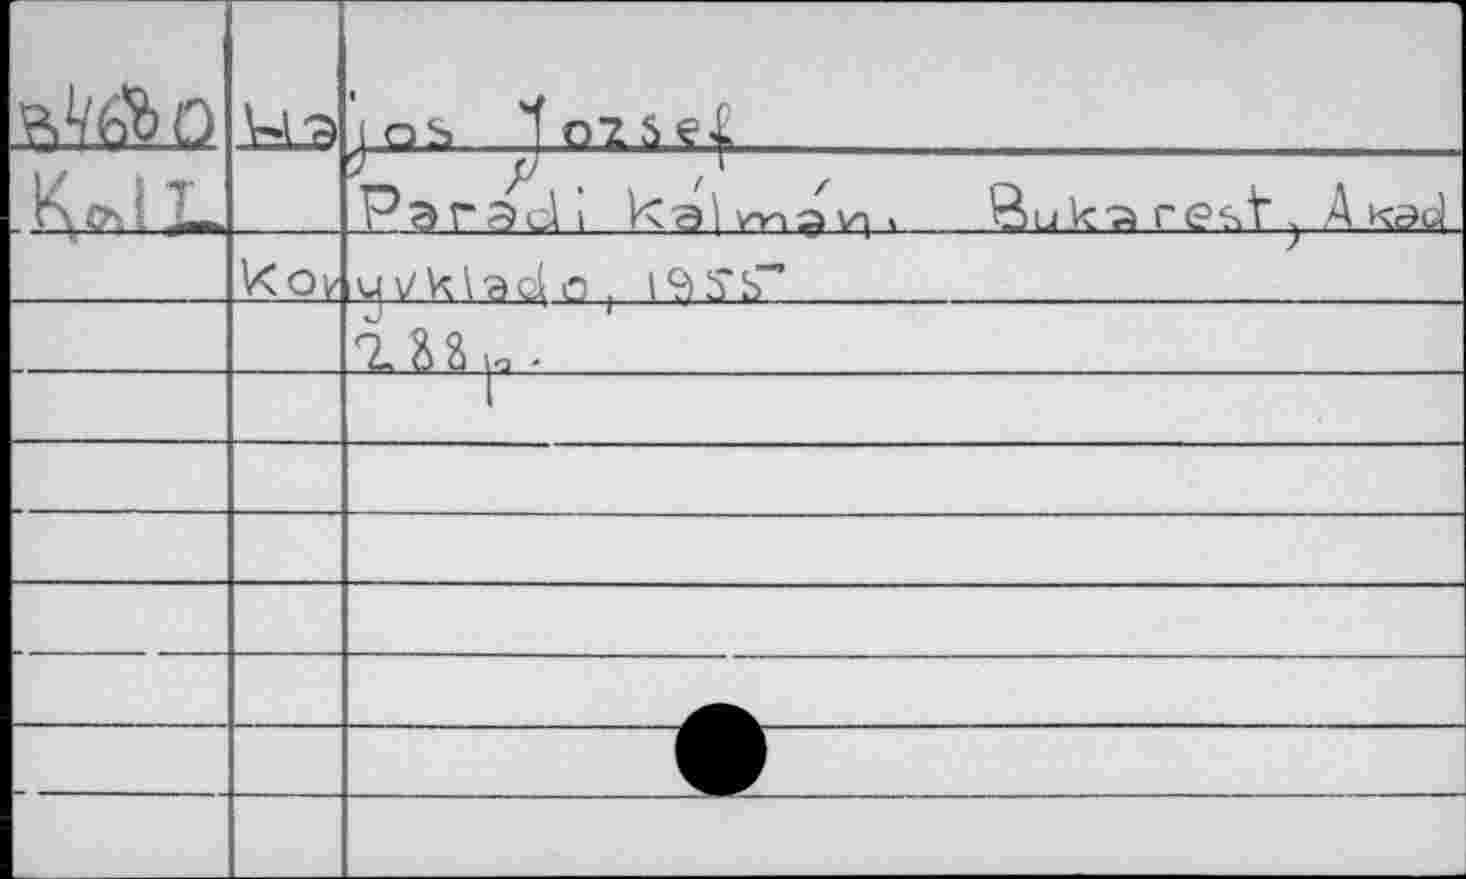 B4680 Hajos Jozsef
KolI Parádi Kálmán. Bukarest, Akad
Konyvklado, 1955
288p.